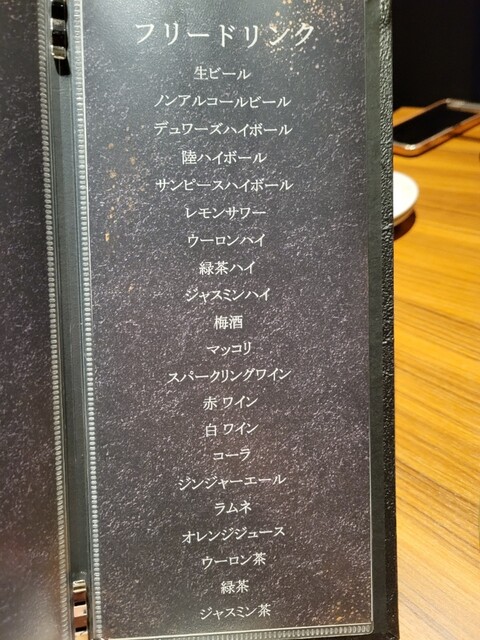 フリードリンク
生ビール
ノンアルコールビール
デュワーズハイボール
陸ハイボール
サンピースハイボール
レモンサワー
ウーロンハイ
緑茶ハイ
ジャスミンハイ
梅酒
マッコリ
スパークリングワイン
赤ワイン
白ワイン
コーラ
ジンジャーエール
ラムネ
オレンジジュース
ウーロン茶
緑茶
ジャスミン茶